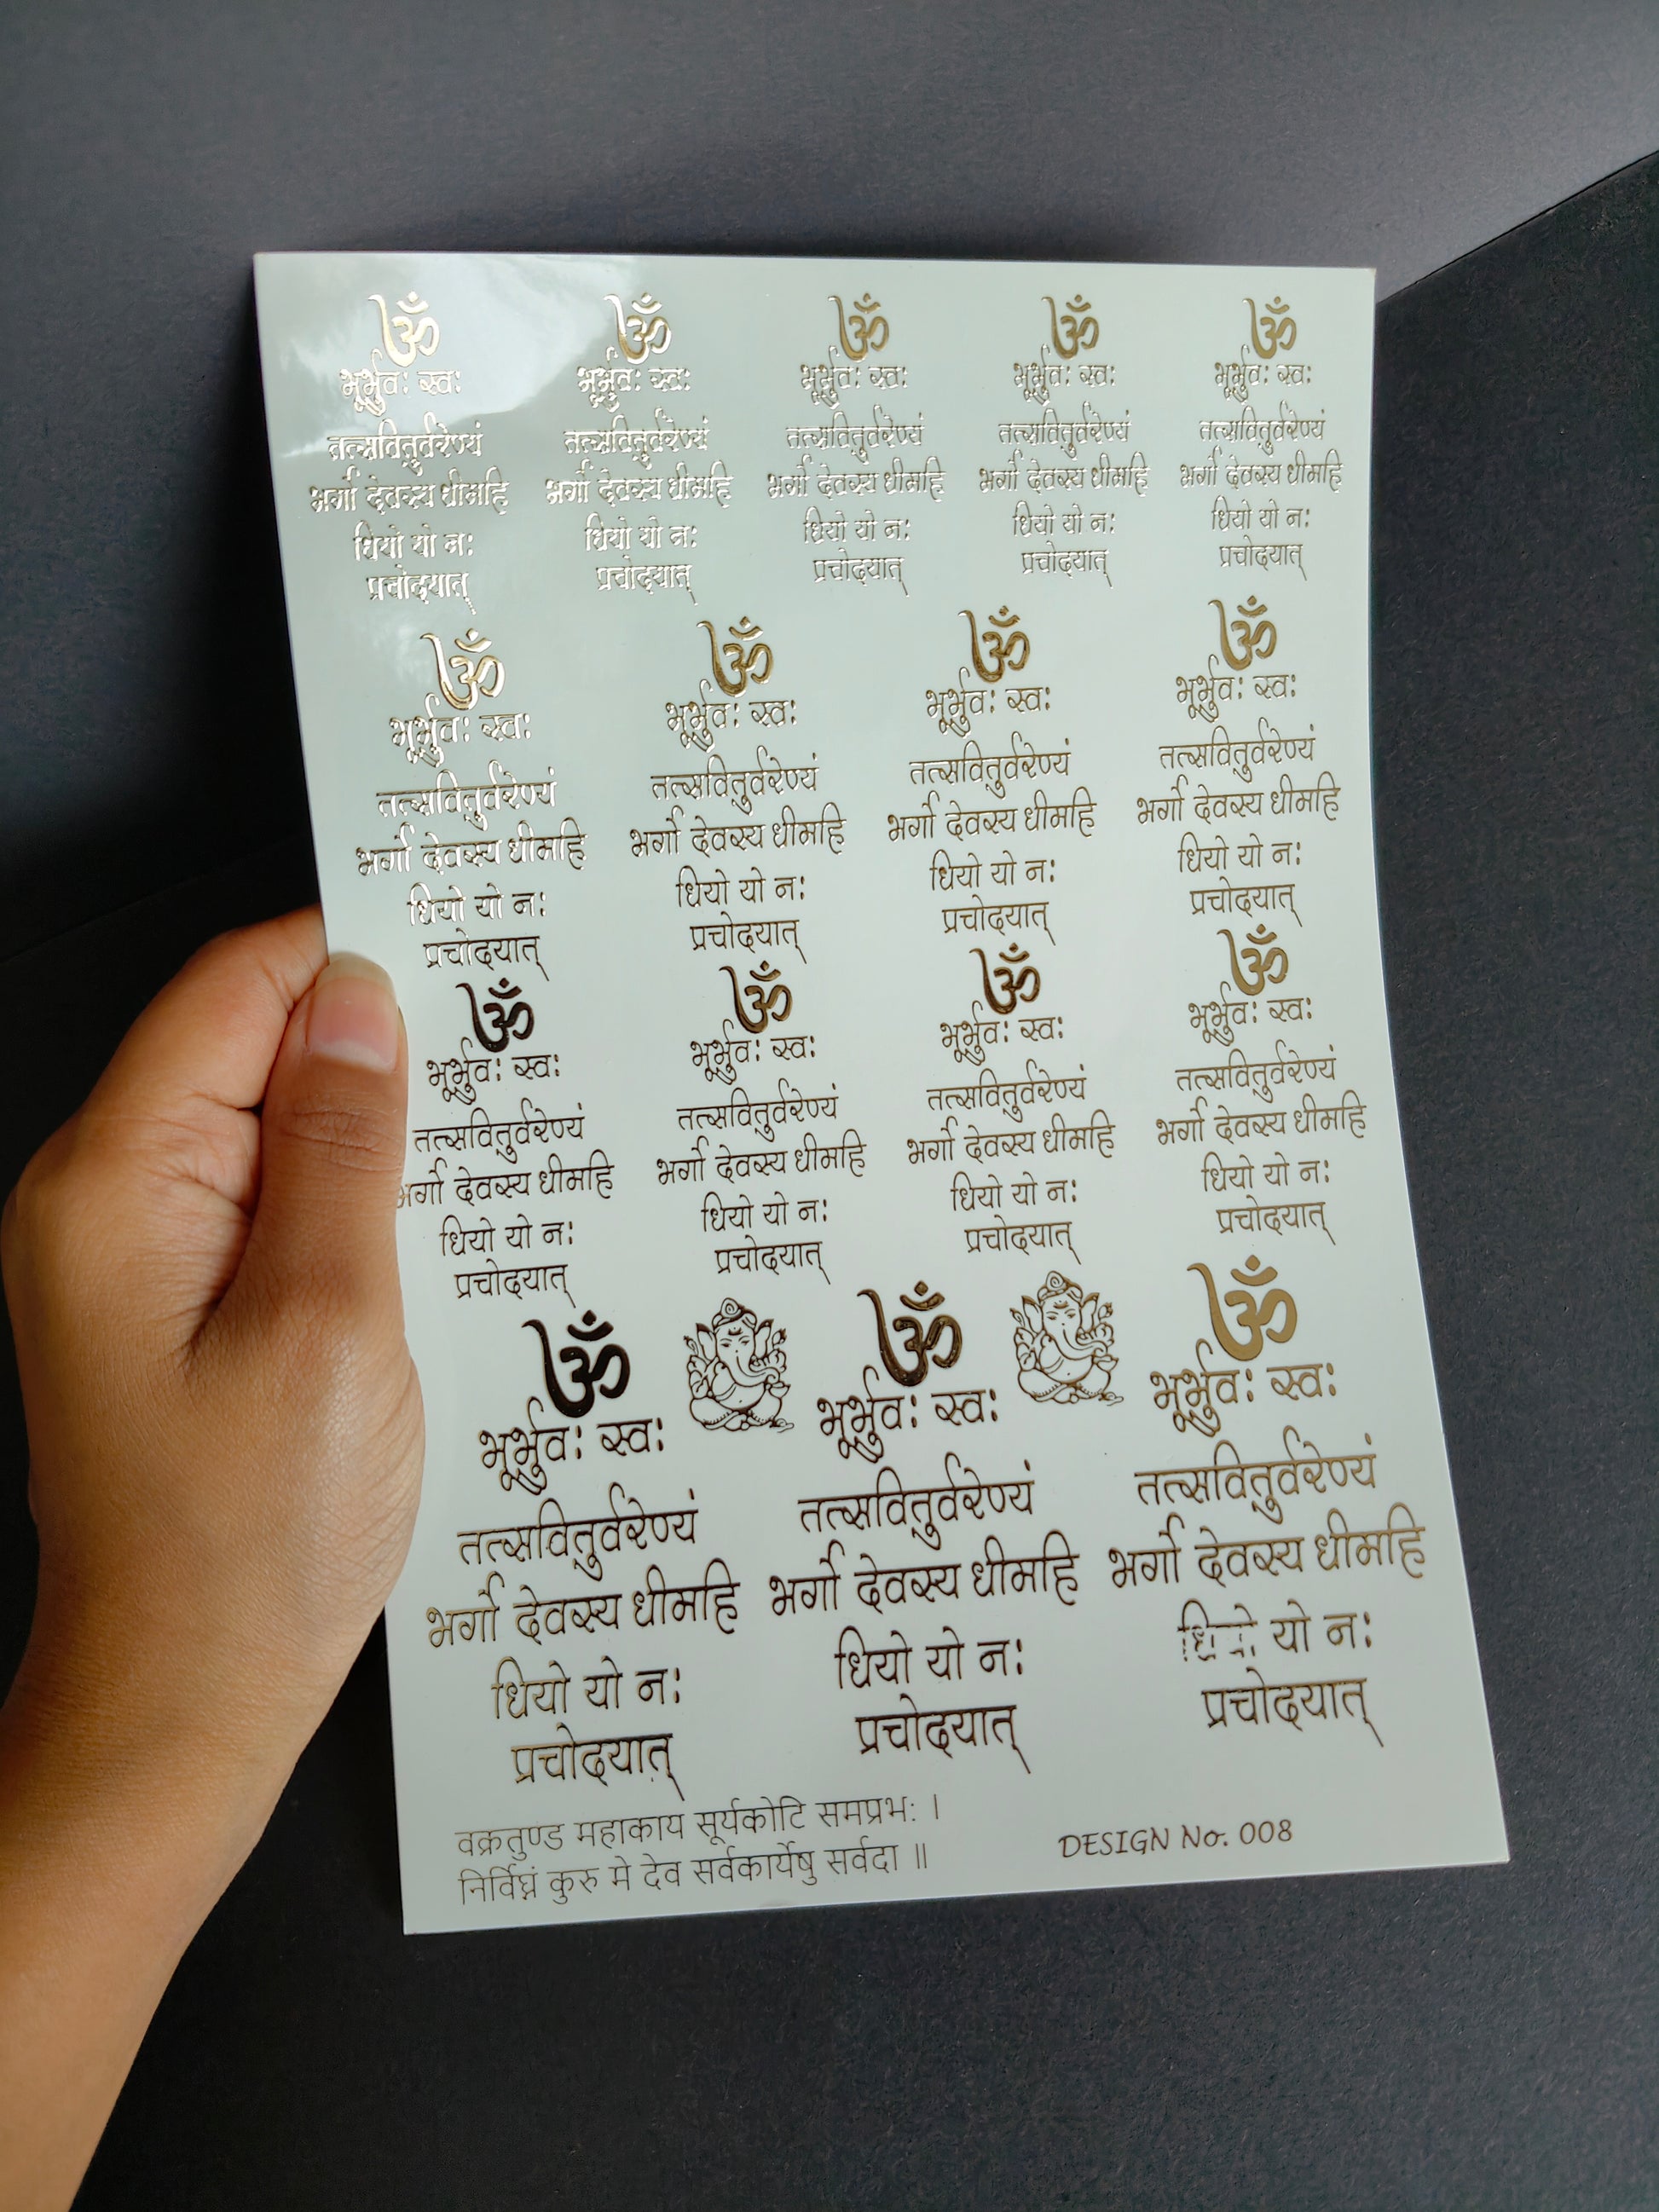 ॐ
भूर्भुवः स्वः
तत्सवितुर्वरेण्यं
भर्गो देवस्य धीमहि
धियो यो नः
प्रचोदयात्
ॐ
भूर्भुवः स्वः
तत्सवितुर्वरेण्यं
भर्गो देवस्य धीमहि
धियो यो नः
प्रचोदयात्
ॐ
भूर्भुवः स्वः
तत्सवितुर्वरेण्यं
भर्गो देवस्य धीमहि
धियो यो नः
प्रचोदयात्
ॐ
भूर्भुवः स्वः
तत्सवितुर्वरेण्यं
भर्गो देवस्य धीमहि
धियो यो नः
प्रचोदयात्
ॐ
भूर्भुवः स्वः
तत्सवितुर्वरेण्यं
भर्गो देवस्य धीमहि
धियो यो नः
प्रचोदयात्
ॐ
भूर्भुवः स्वः
तत्सवितुर्वरेण्यं
भर्गो देवस्य धीमहि
धियो यो नः
प्रचोदयात्
ॐ
भूर्भुवः स्वः
तत्सवितुर्वरेण्यं
भर्गो देवस्य धीमहि
धियो यो नः
प्रचोदयात्
ॐ
भूर्भुवः स्वः
तत्सवितुर्वरेण्यं
भर्गो देवस्य धीमहि
धियो यो नः
प्रचोदयात्
ॐ
भूर्भुवः स्वः
तत्सवितुर्वरेण्यं
भर्गो देवस्य धीमहि
धियो यो नः
प्रचोदयात्
ॐ
भूर्भुवः स्वः
तत्सवितुर्वरेण्यं
भर्गो देवस्य धीमहि
धियो यो नः
प्रचोदयात्
ॐ
भूर्भुवः स्वः
तत्सवितुर्वरेण्यं
भर्गो देवस्य धीमहि
धियो यो नः
प्रचोदयात्
ॐ
भूर्भुवः स्वः
तत्सवितुर्वरेण्यं
भर्गो देवस्य धीमहि
धियो यो नः
प्रचोदयात्
ॐ
भूर्भुवः स्वः
तत्सवितुर्वरेण्यं
भर्गो देवस्य धीमहि
धियो यो नः
प्रचोदयात्
ॐ
भूर्भुवः स्वः
तत्सवितुर्वरेण्यं
भर्गो देवस्य धीमहि
धियो यो नः
प्रचोदयात्
ॐ
भूर्भुवः स्वः
तत्सवितुर्वरेण्यं
भर्गो देवस्य धीमहि
धियो यो नः
प्रचोदयात्
ॐ
भूर्भुवः स्वः
तत्सवितुर्वरेण्यं
भर्गो देवस्य धीमहि
यो नः
प्रचोदयात्
वक्रतुण्ड महाकाय सूर्यकोटि समप्रभः ।
निर्विघ्नं कुरु मे देव सर्वकार्येषु सर्वदा ॥
DESIGN No. 008